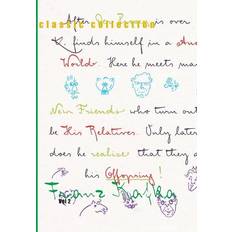 After is over
classic collection
K. finds himself in a
World. Here he meets ma
New Friends who turn out
be His Relatives. Only later
does he realize that they a
his Offspring!
Franz Kafka
Vol 2